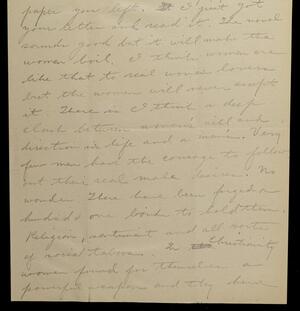 paper you left. I just got
your letter and read it. The novel
sounds good but it will make the
women boil. I think women are
like that to real women lovers
but the women will never accept
it. There is I think a deep
clash between women's will and
direction in life and a man's. Very
few men had the courage to follow
out their real male desires. No
wonder. There have been forged a
hundred & one bonds to hold them.
Religion, sentiment and all sorts
of social taboos. In Christianity
women found for themselves a
powerful weapon and they have